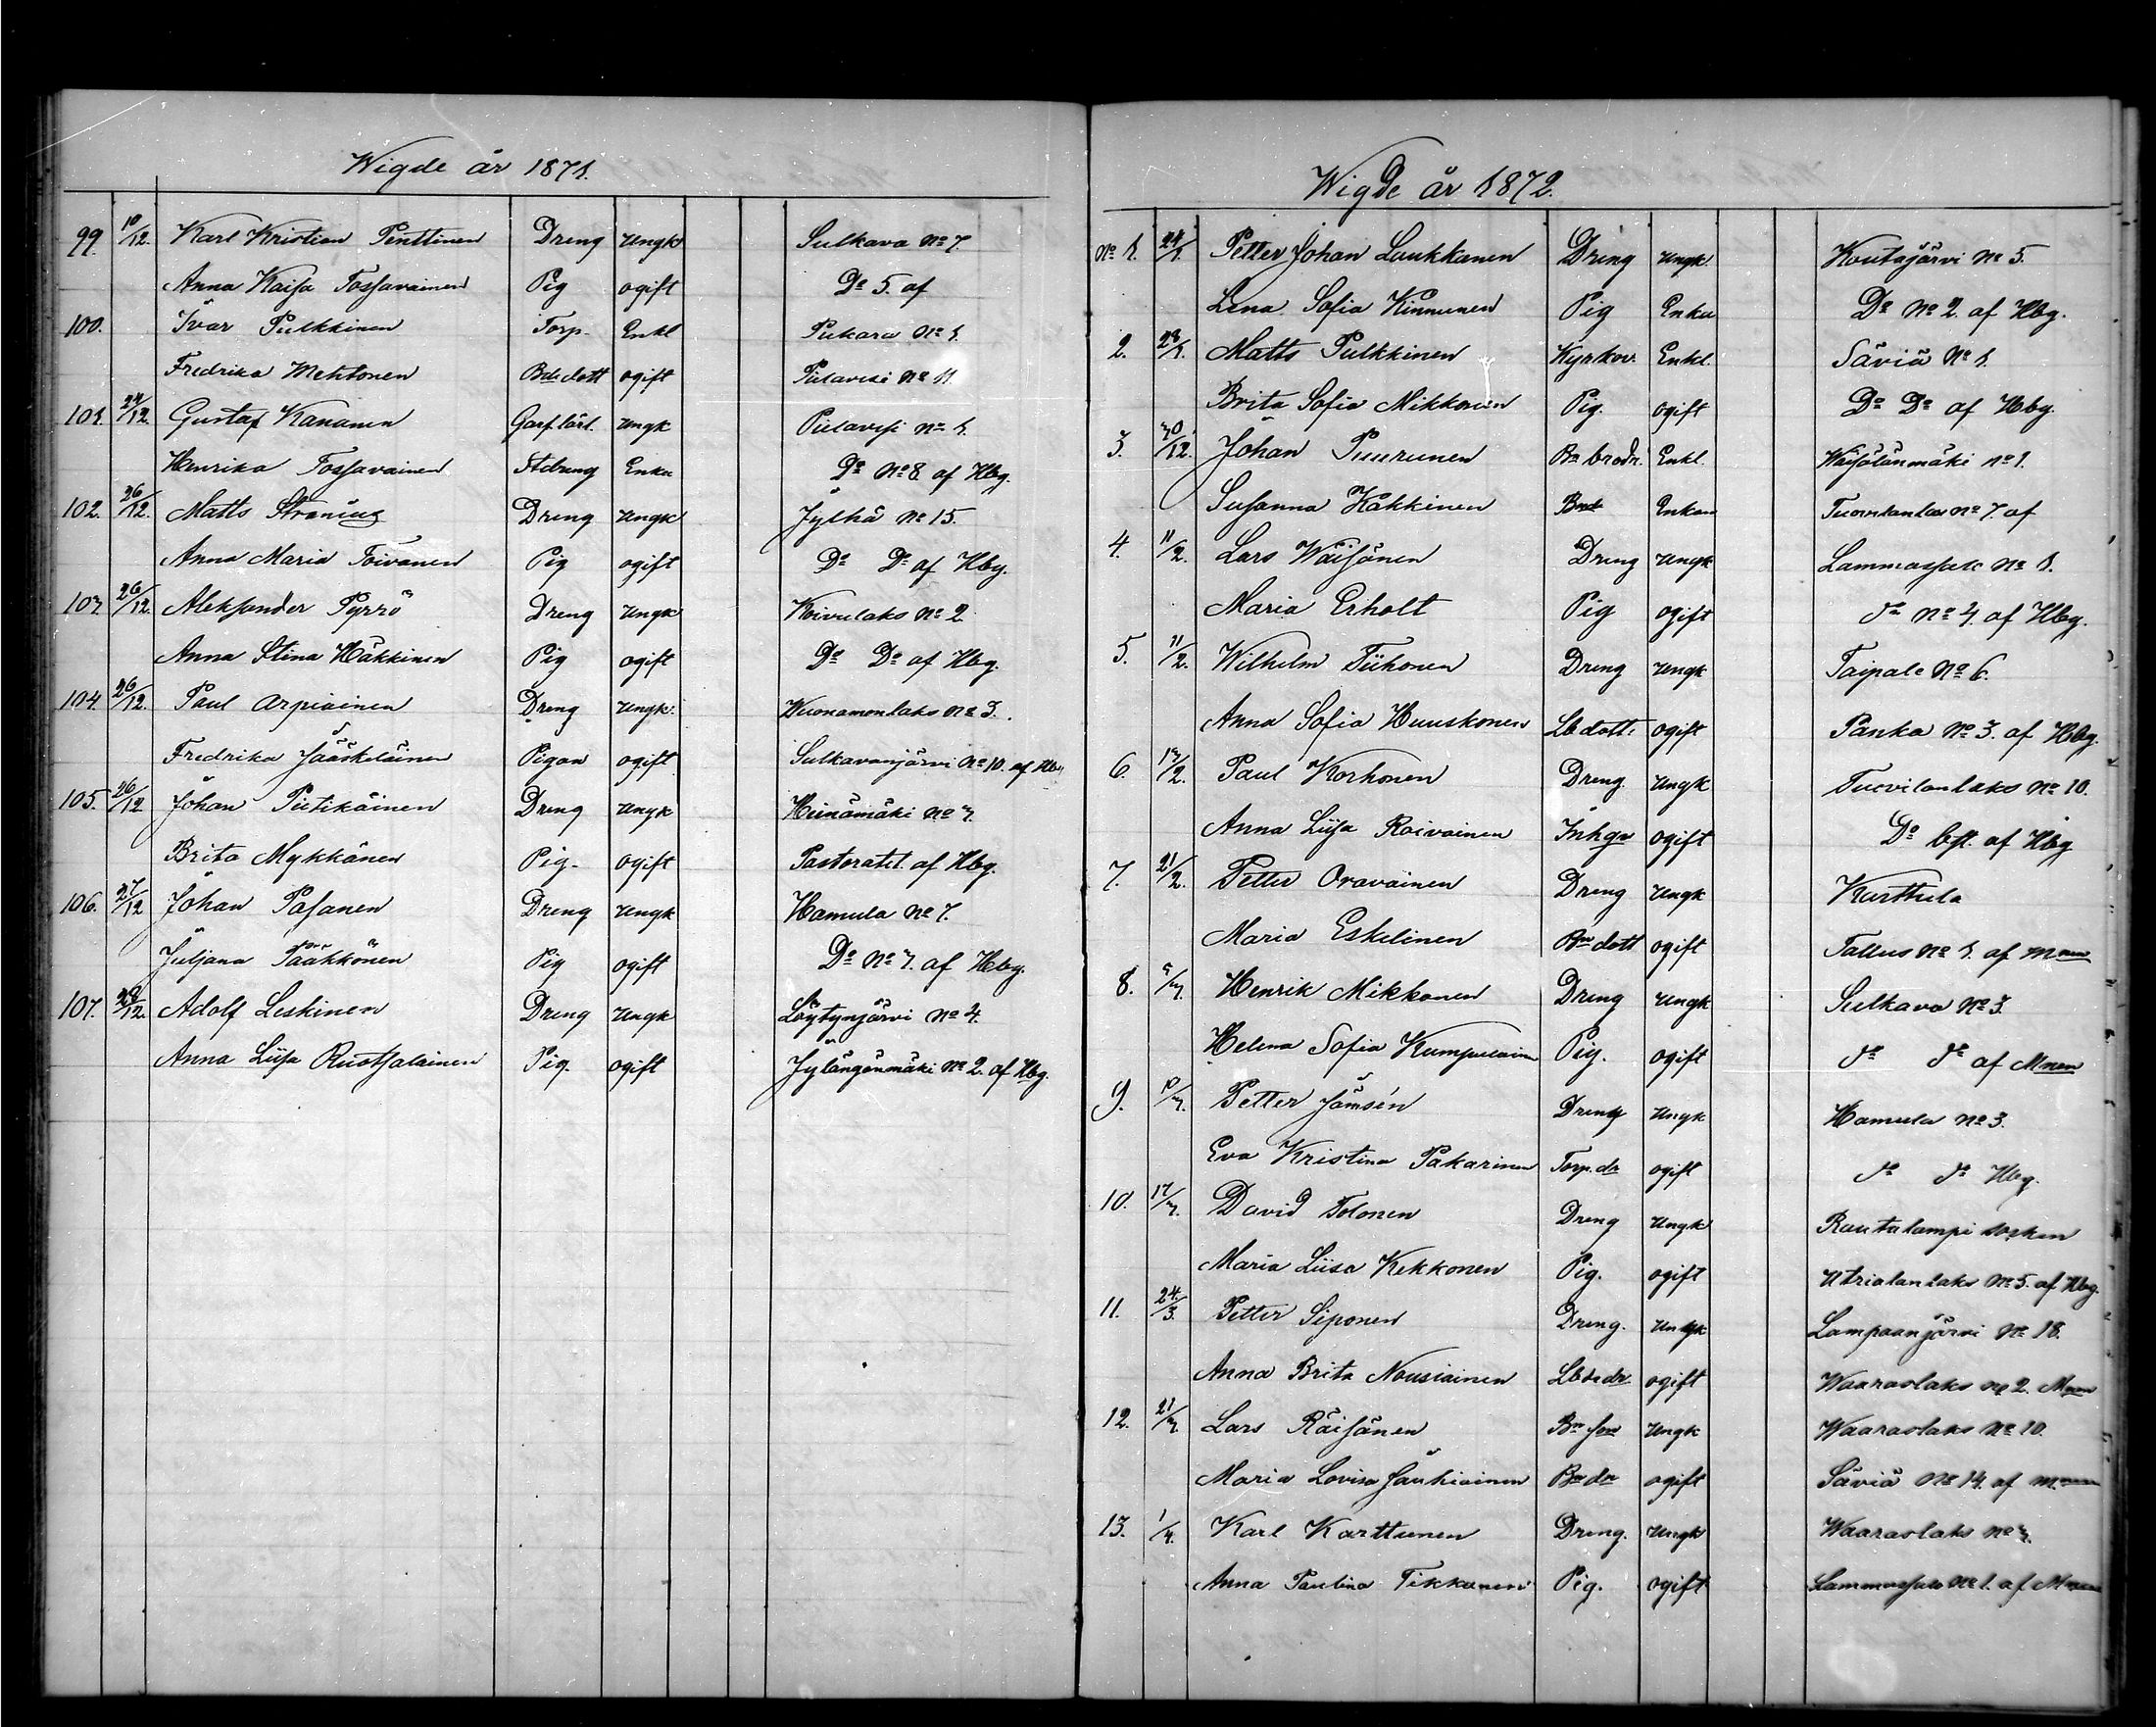 Wigde år 1871.
99. 10/12. Karl Kristian Penttinen Dreng Ungk Sulkava No 7.
Anna Kaisa Tossavainen Pig ogift Do 5. af
100. Ivar Pulkkinen Torp. Enkl Pukara No 1.
Fredrika Mehtonen Bdedott ogift Pielavesi No 11.
101. 24/12. Gustaf Kananen Garf.lärl. Ungk Pielavesi No 1.
Henrika Tossavainen Enka Do No 8 af Hbg.
102. 26/12. Matts Ströning Dreng Ungk Jylhä No 15.
Anna Maria Toivanen Pig ogift Do Do af Hbg.
103 26/12. Aleksander Pyrrö Dreng Ungk Koivulaks No 2
Anna Stina Häkkinen Pig ogift Do Do af Hbg.
104 26/12. Paul Arpiainen Dreng Ungk. Wuonamonlaks No 3.
Fredrika Jääskeläinen Pigan ogift Sulkavanjärvi No 10. af Hbg
105. 26/12 Johan Pietikäinen Dreng Ungk Heinämäki No 3.
Brita Mykkänen Pig. ogift Pastoratet. af Hbg.
106. 27/12 Johan Pasanen Dreng Ungk Hamula No 7.
Juljana Pääkkönen Pig ogift Do No 3. af Hbg.
107. 28/12. Adolf Leskinen Dreng Ungk Löytynjärvi No 4.
Anna Liisa Ruotsalainen Pig. ogift Jylängänmäki No 2. af Hbg.
Wigde år 1872.
No 1. 24/1. Petter Johan Laukkanen Dreng Ungk. Koutajärvi No 5.
Lena Sofia Kinnunen Pig Enka Do No 2. af Hbg.
2. 28/1. Matts Pulkkinen Kyrkov. Enkl. Säviä No 1.
Brita Sofia Mikkonen Pig. ogift Do Do af Hbg.
3. 30/12. Johan Puurunen Bn brodr. Enkl. Wäisälänmäki No 1.
Susanna Häkkinen Enkan No 7. af
4. 11/2. Lars Wäisänen Dreng Ungk Lammassalo No 1.
Maria Erholt Pig ogift do No 4. af Hbg.
5. 11/2. Wilhelm Tiihonen Dreng Ungk Taipale No 6.
Anna Sofia Huuskonen Lbdott. ogift Panka No 3. af Hbg.
6. 13/2. Paul Korhonen Dreng. Ungk Tuovilanlaks No 10.
Anna Liisa Roivainen Inhgn ogift Do bst. af Hbg
7. 21/2. Petter Oravainen Dreng Ungk Karttula
Maria Eskelinen Bndott ogift Tallus No 1. af Mnen
8. 5/3. Henrik Mikkonen Dreng Ungk Sulkava No 3.
Helena Sofia Kumpulainen Pig. ogift do do af Mnen
9. 10/3. Petter Jämsén Dreng Ungk Hamula No 3.
Eva Kristina Pakarinen Torp.dr ogift do do Hbg.
10. 17/3. David Tolonen Dreng Ungk Rautalampi socken
Maria Liisa Kekkonen Pig. ogift Utrialanlaks No 5. af Hbg.
11. 24/3. Petter Siponen Dreng. Ungk Lampaanjärvi No 18.
Anna Brita Nousiainen Lbdedr ogift Waaraslaks No 2. Mnen
12. 21/3. Lars Räisänen Bn son Ungk Waaraslaks No 10.
Maria Lovisa Jauhiainen Bn dr ogift Säviä No 14. af Mnen
13. 1/4. Karl Karttunen Dreng. Ungk Waaraslaks No 3.
Anna Paulina Tikkanen Pig. ogift Lammassalo No 1. af Mnen